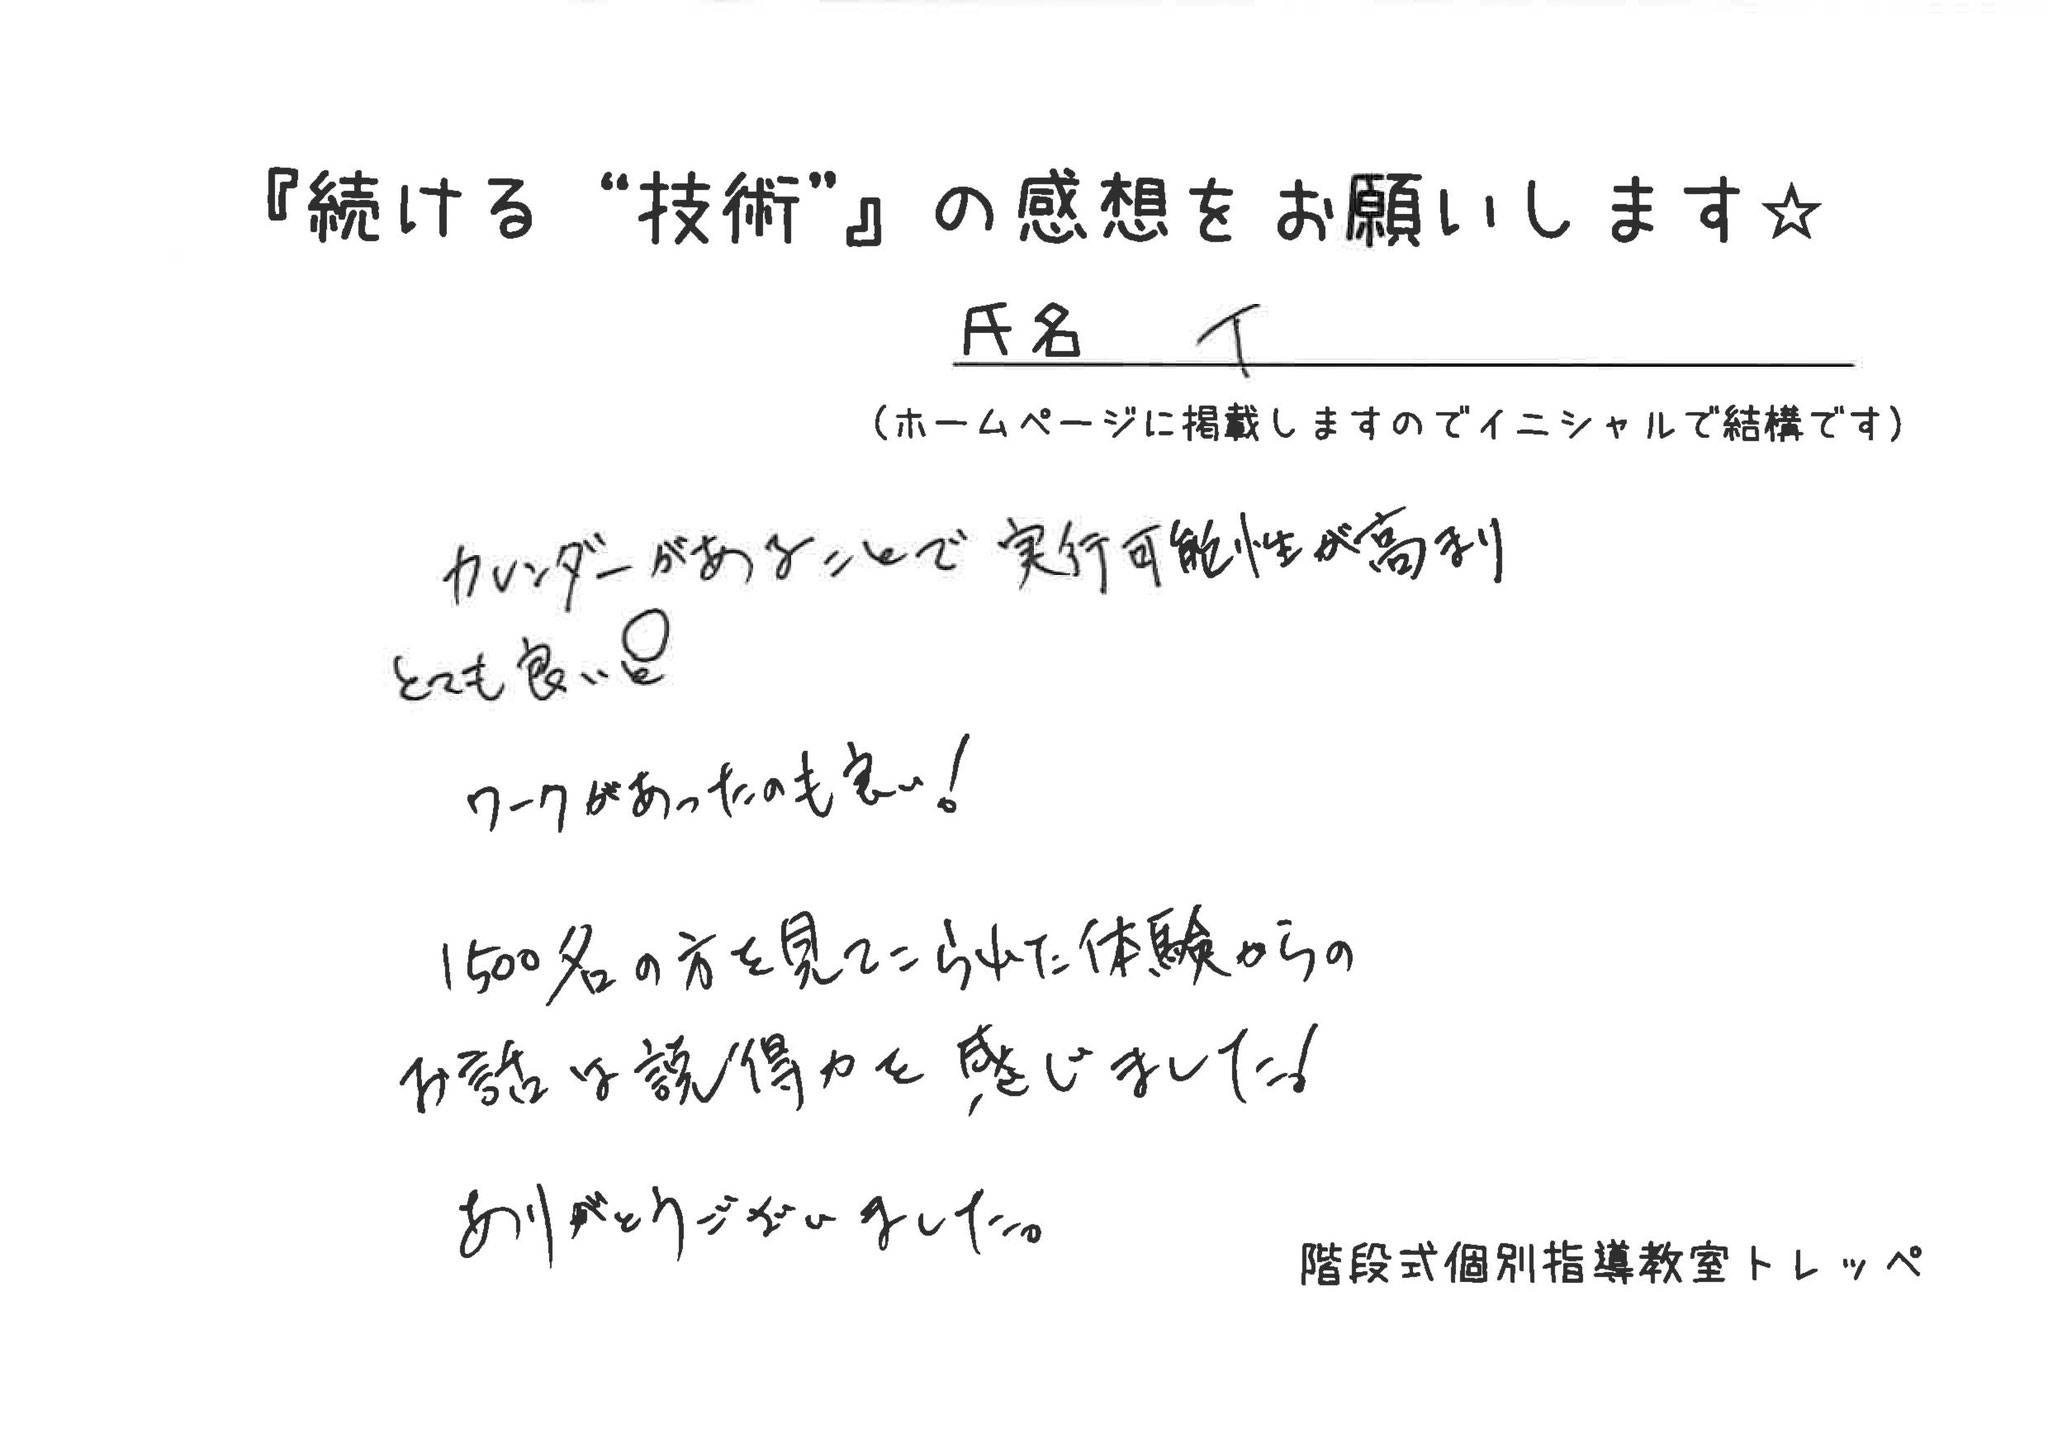 『続ける“技術”』の感想をお願いします☆
氏名 T
(ホームページに掲載しますのでイニシャルで結構です)
カレンダーがあることで実行可能性が高まり
とても良い
ワークがあったのも良い！
1500名の方を見てこられた体験からの
お話は説得力を感じました！
ありがとうございました。
階段式個別指導教室トレッペ